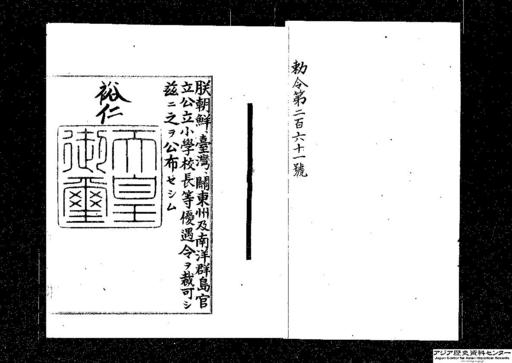 勅令第二百六十一號
朕朝鮮、臺灣、關東州及南洋群島官
立公立小學校長等優遇令ヲ裁可シ
茲ニ之ヲ公布セシム
裕仁
天皇
御璽
アジア歴史資料センター
Japan Center for Asian Historical Records